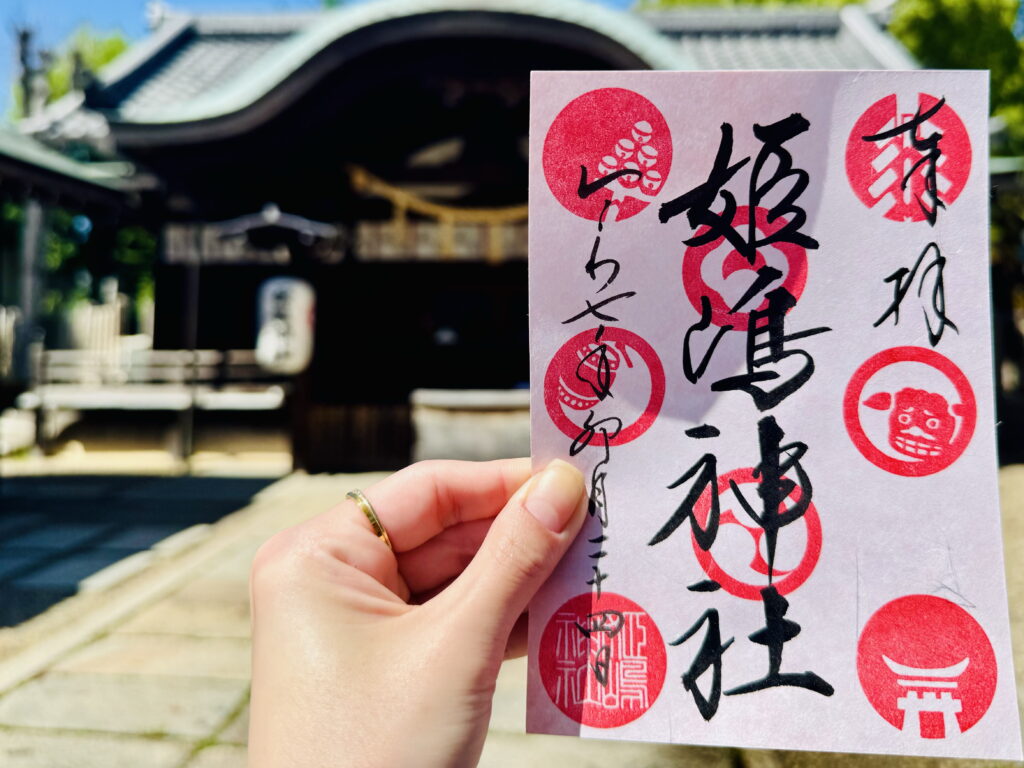 奉拝
姫嶋神社
れいわ七年卯月二十四日
姫嶋
神社